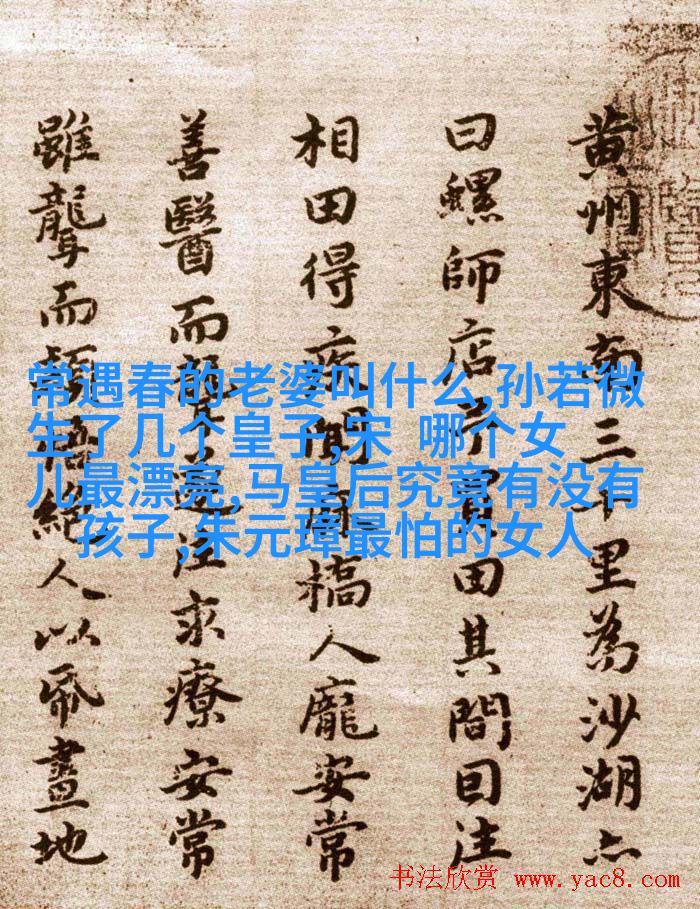 黄州東南三十里為沙湖亦
曰螺師店予買田其間因往
相田得疾聞麻橋人龐安常
善醫而聾遂往求療安常
雖聾而穎悟絕人以帋畫地
常遇春的老婆叫什么,孙若微
生了几个皇子,宋 哪个女
儿最漂亮,马皇后究竟有没有
孩子,朱元璋最怕的女人
书法欣赏 www.yac8.com